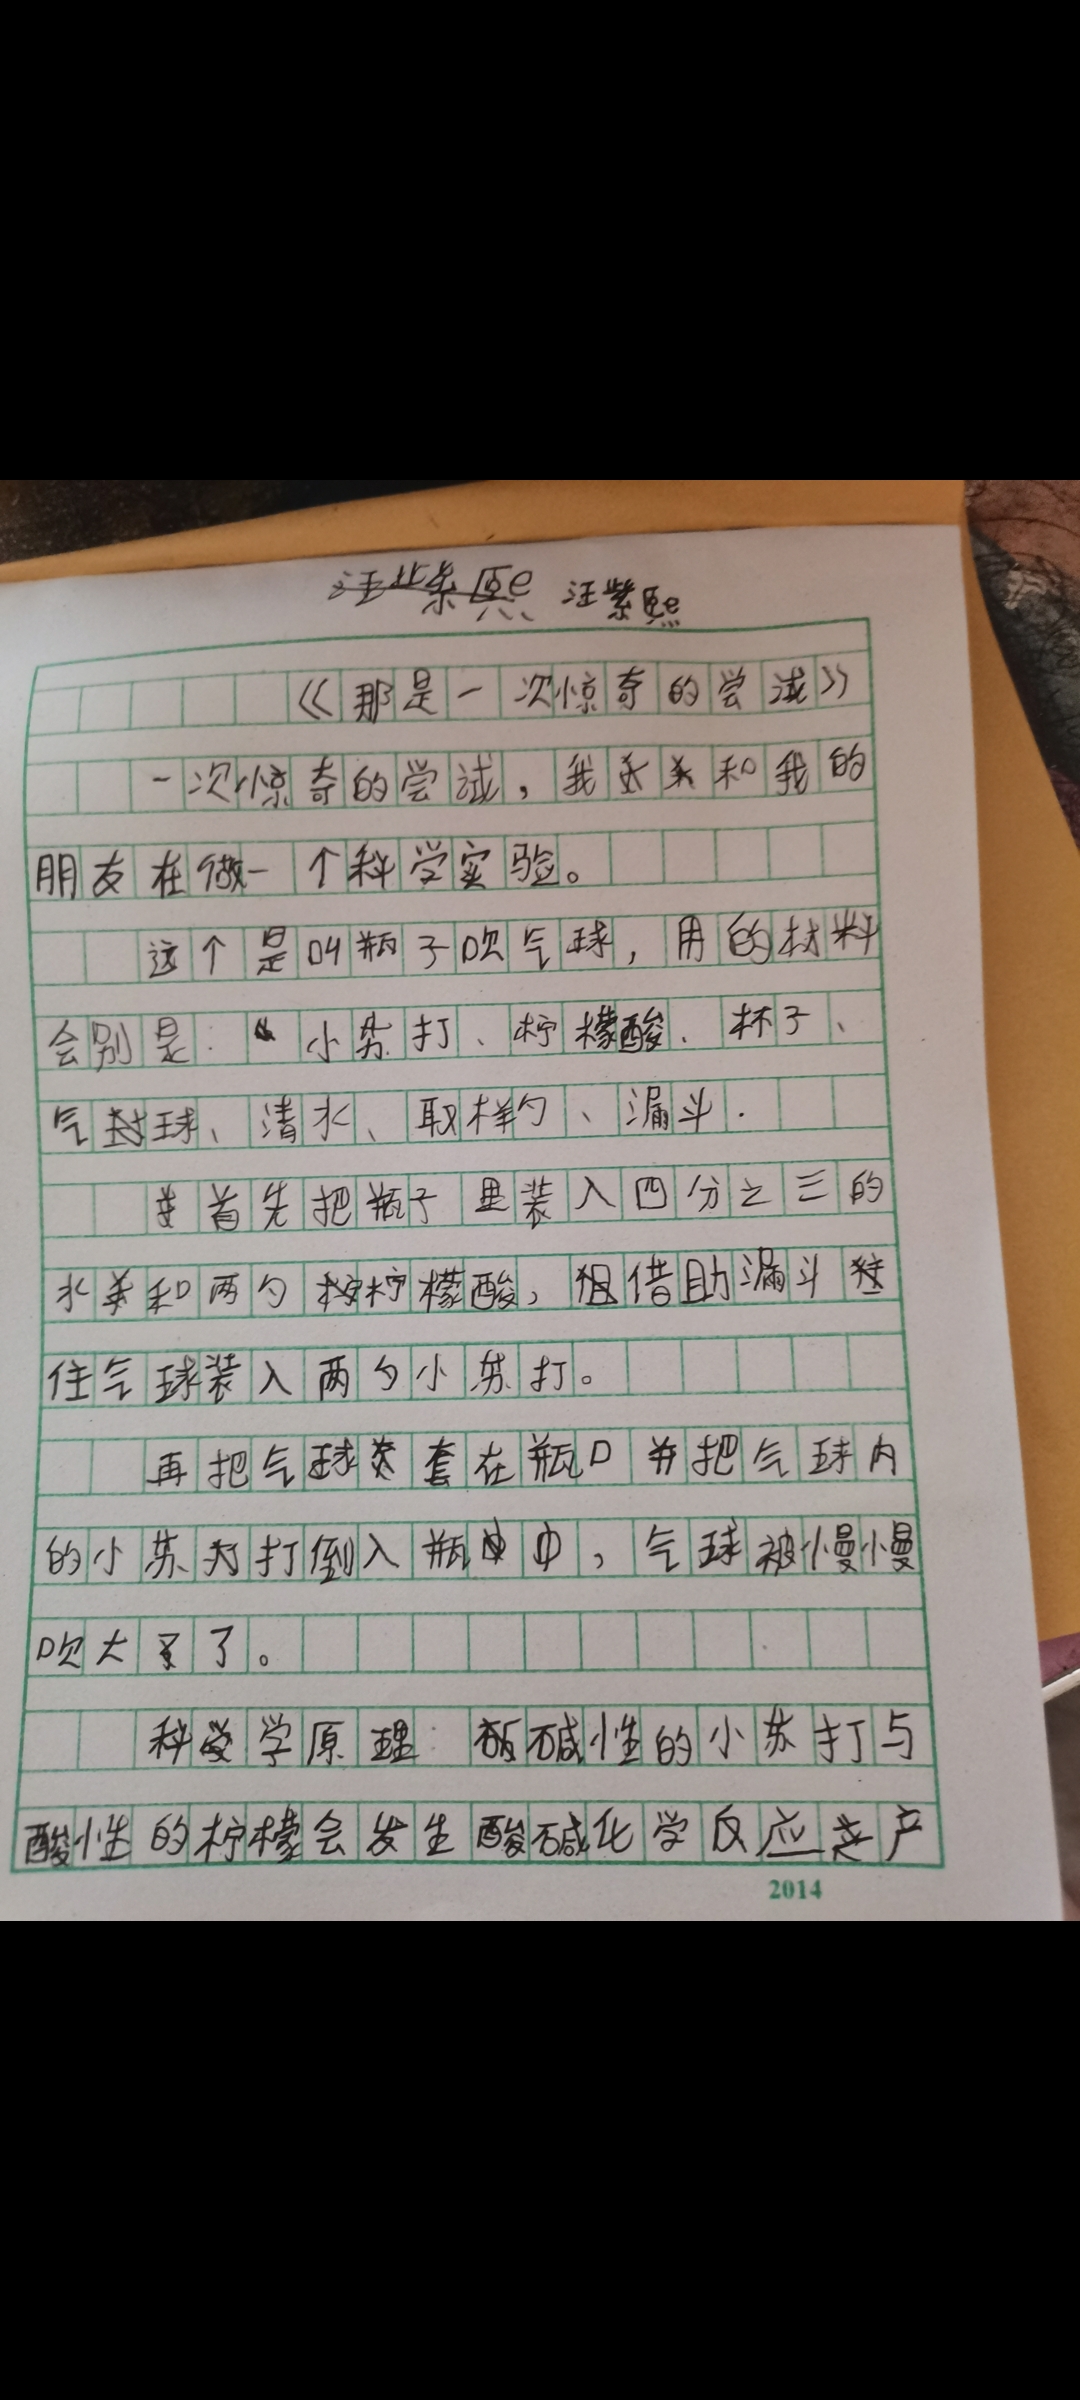 汪紫熙
《那是一次惊奇的尝试》
一次惊奇的尝试，我和我的
朋友在做一个科学实验。
这个是叫瓶子吹气球，用的材料
会别是：小苏打、柠檬酸、杯子、
气球、清水、取样勺、漏斗.
首先把瓶子里装入四分之三的
水和两勺柠檬酸，借助漏斗
住气球装入两勺小苏打。
再把气球套在瓶口并把气球内
的小苏打倒入瓶中，气球被慢慢
吹大了。
科学原理：碱性的小苏打与
酸性的柠檬会发生酸碱化学反应产
2014